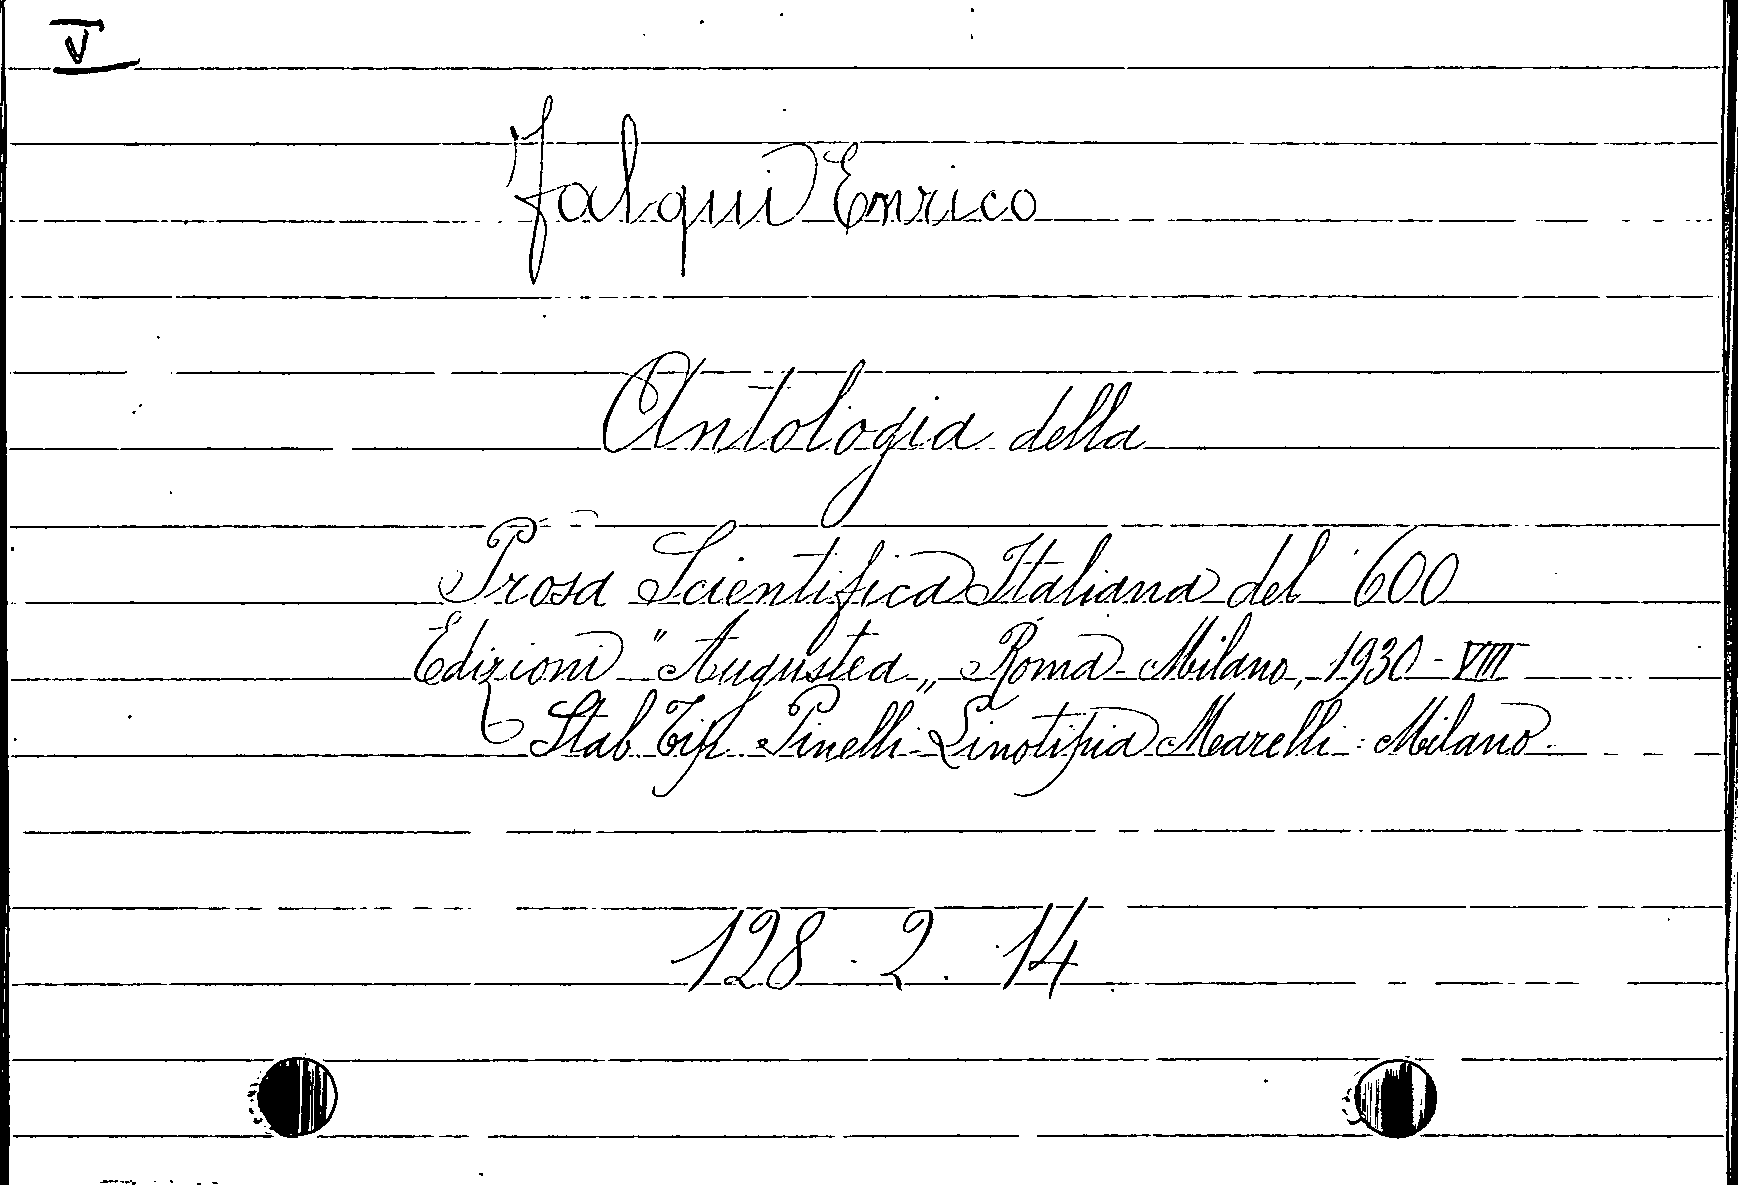 V
Falqui Enrico
Antologia della
Prosa Scientifica Italiana del '600
Edizioni "Augustea„ Roma - Milano, 1930 - VIII
Stab. Tip. Pinelli - Linotipia Marelli : Milano.
128 . 2 . 14